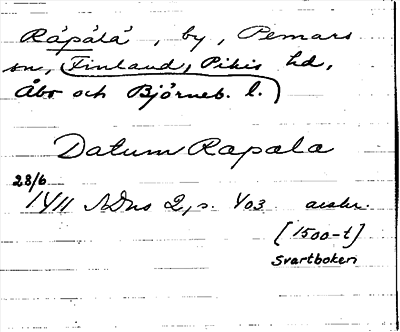 Räpälä, by, Pemars
sn, (Finland, Pikis hd,
Åbo och Björneb. l.)
Datum Rapala
23/6
1411 ADns 2, s. 403 avskr.
[1500-t]
Svartboken